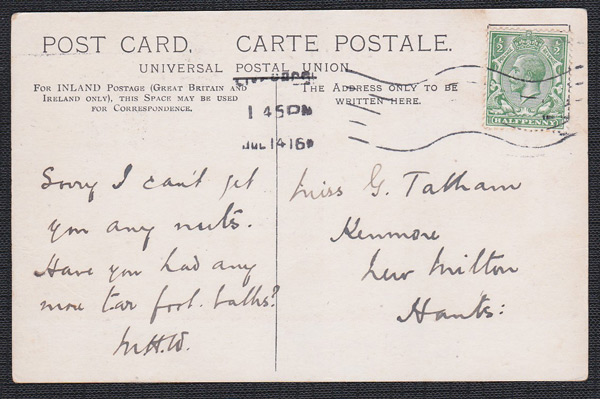 POST CARD. CARTE POSTALE.
UNIVERSAL POSTAL UNION.
FOR INLAND POSTAGE (GREAT BRITAIN AND
IRELAND ONLY), THIS SPACE MAY BE USED
FOR CORRESPONDENCE.
THE ADDRESS ONLY TO BE
WRITTEN HERE.
LIVERPOOL
1 45 PM
JUL 14 16
½ ½
HALFPENNY
Sorry I can't get
you any nuts.
Have you had any
more tar foot. baths?
M.H.W.
Miss G. Tatham
Kenmore
New Milton
Hants: